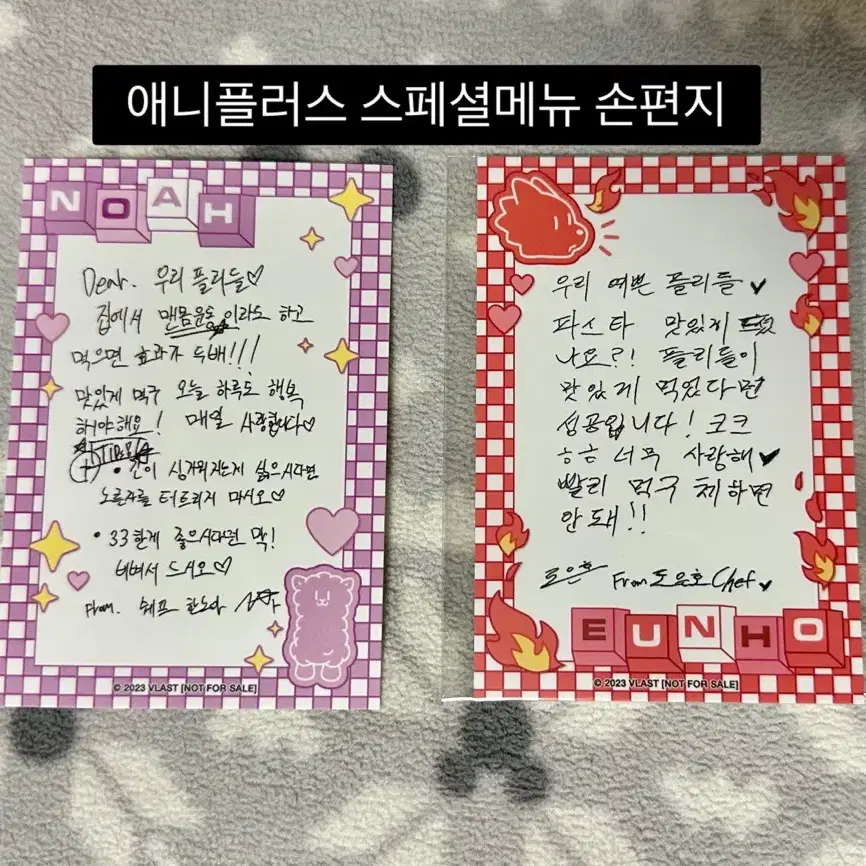 애니플러스 스페셜메뉴 손편지
NOAH
Dear. 우리 플리들♡
집에서 맨몸운동이라도 하고
먹으면 효과가 두배!!!
맛있게 먹구 오늘 하루도 행복
해야해요! 매일 사랑합니다♡
싱거워지는게 싫으시다면
노른자를 터트리지 마시오♡
• 좋으시다면 막!
비벼서 드시오♡
From. 쉐프 한노아
© 2023 VLAST [NOT FOR SALE]
우리 예쁜 플리들
파스타 맛있게
나요?! 플리들이
맛있게 먹었다면
성공입니다! 코크
ㅎㅎ 너무 사랑해
빨리 먹구 체하면
안돼!!
From 도은호 Chef
EUNHO
© 2023 VLAST [NOT FOR SALE]